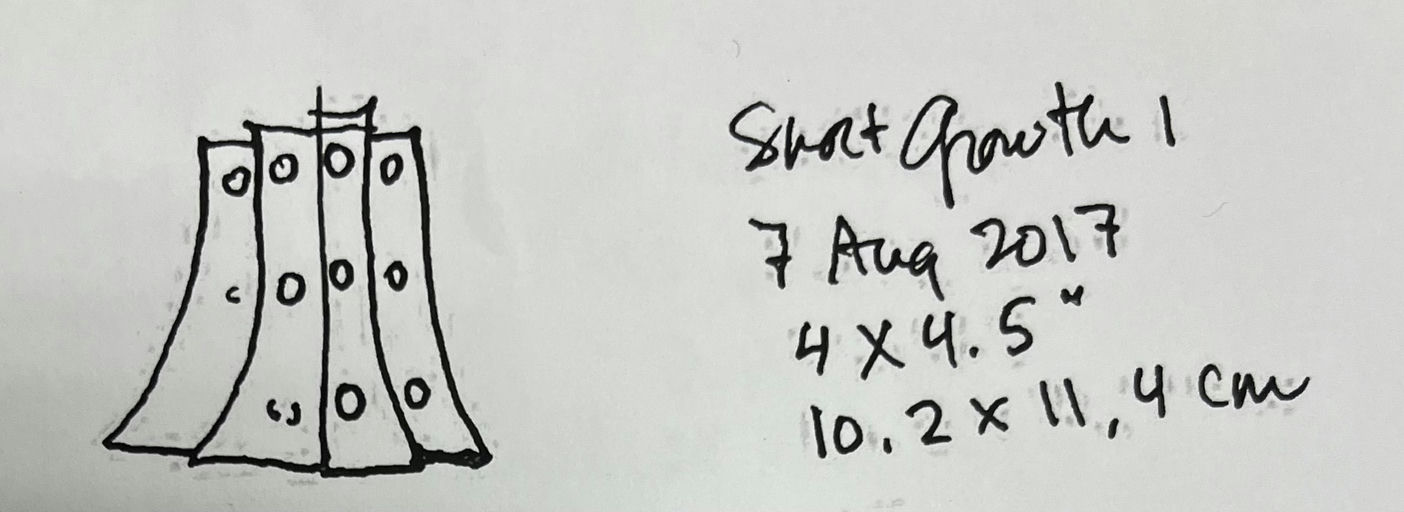 Short Growth 1
7 Aug 2017
4 x 4.5"
10.2 x 11,4 cm